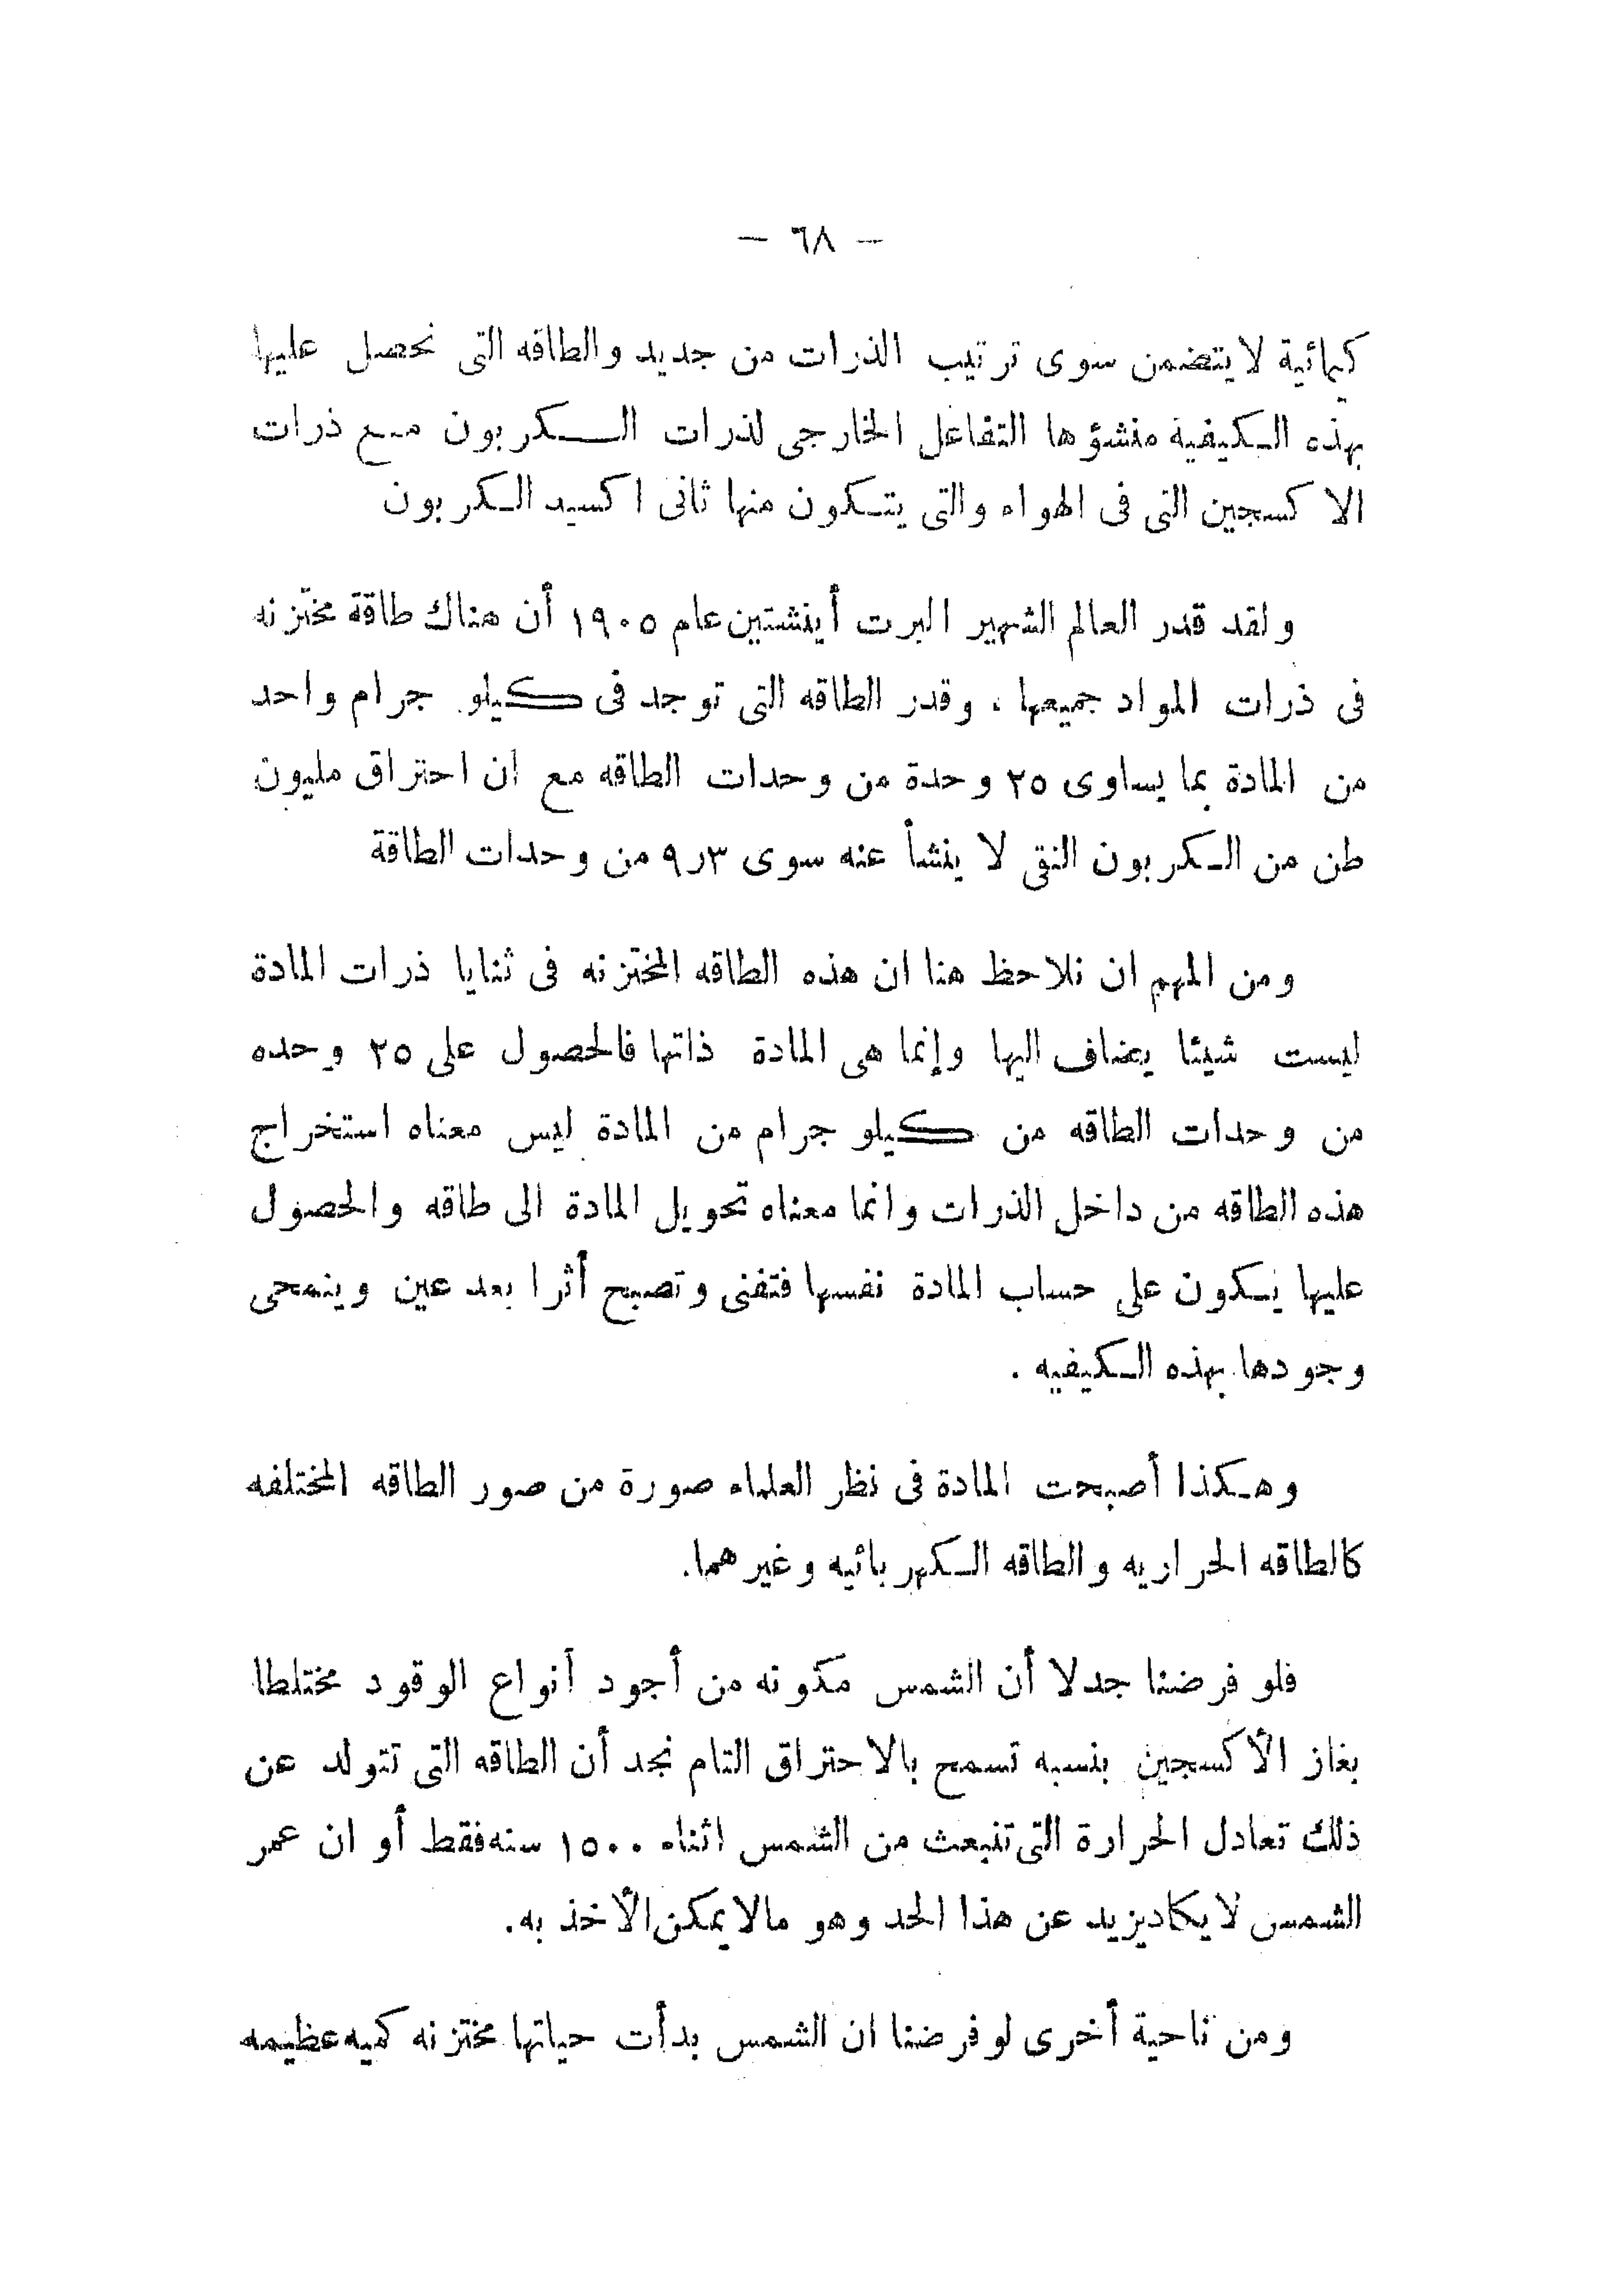 — ٦٨ —
كيمائية لا يتضمن سوى ترتيب الذرات من جديد والطاقه التى نحصل عليها
بهذه الكيفية منشؤها التفاعل الخارجى لذرات الكربون مع ذرات
الاكسجين التى فى الهواء والتى يتكون منها ثانى اكسيد الكربون
ولقد قدر العالم الشهير البرت أينشتين عام ١٩٠٥ أن هناك طاقة مختزنه
فى ذرات المواد جميعها ، وقدر الطاقه التى توجد فى كيلو جرام واحد
من المادة بما يساوى ٢٥ وحدة من وحدات الطاقه مع ان احتراق مليون
طن من الكربون النقى لا ينشأ عنه سوى ٩٫٣ من وحدات الطاقة
ومن المهم ان نلاحظ هنا ان هذه الطاقه المختزنه فى ثنايا ذرات المادة
ليست شيئا يضاف اليها وإنما هى المادة ذاتها فالحصول على ٢٥ وحده
من وحدات الطاقه من كيلو جرام من المادة ليس معناه استخراج
هذه الطاقه من داخل الذرات وانما معناه تحويل المادة الى طاقه والحصول
عليها يكون على حساب المادة نفسها فتفنى وتصبح أثرا بعد عين وينمحى
وجودها بهذه الكيفيه .
وهكذا أصبحت المادة فى نظر العلماء صورة من صور الطاقه المختلفه
كالطاقه الحراريه والطاقه الكهربائيه وغيرهما.
فلو فرضنا جدلا أن الشمس مكونه من أجود أنواع الوقود مختلطا
بغاز الأكسجين بنسبه تسمح بالاحتراق التام نجد أن الطاقه التى تتولد عن
ذلك تعادل الحرارة التى تنبعث من الشمس اثناء ١٥٠٠ سنه فقط أو ان عمر
الشمس لا يكاد يزيد عن هذا الحد وهو مالا يمكن الأخذ به.
ومن ناحية أخرى لو فرضنا ان الشمس بدأت حياتها مختزنه كميه عظيمه